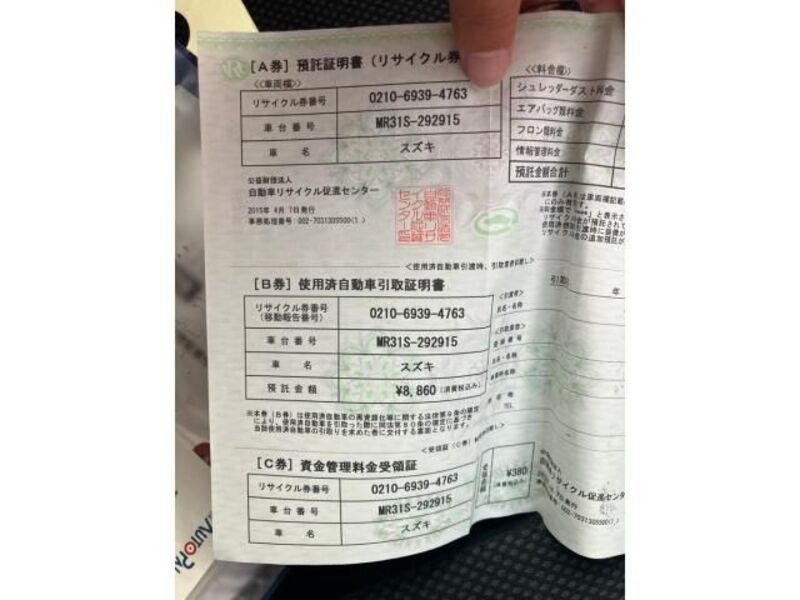 ［Ａ券］預託証明書（リサイクル券
<<車両欄>>
リサイクル券番号 0210-6939-4763
車台番号 MR31S-292915
車 名 スズキ
公益財団法人
自動車リサイクル促進センター
2015年 4月 7日発行
<<料金欄>>
シュレッダーダスト料金
エアバッグ類料金
フロン類料金
情報管理料金
預託金額合計
<使用済自動車引渡時、引取業者切離し>
［Ｂ券］使用済自動車引取証明書
リサイクル券番号
(移動報告番号) 0210-6939-4763
車台番号 MR31S-292915
車 名 スズキ
預託金額 ¥8,860 (消費税込み)
※本券（Ｂ券）は使用済自動車の再資源化等に関する法律第９条の規定
により、使用済自動車を引取った際に同法第８０条の規定に基づき
当該使用済自動車の引取りを求めた者に交付する書面となります。
年
TEL
［Ｃ券］資金管理料金受領証
リサイクル券番号 0210-6939-4763
車台番号 MR31S-292915
車 名 スズキ
¥380
(消費税込み)
リサイクル促進センタ